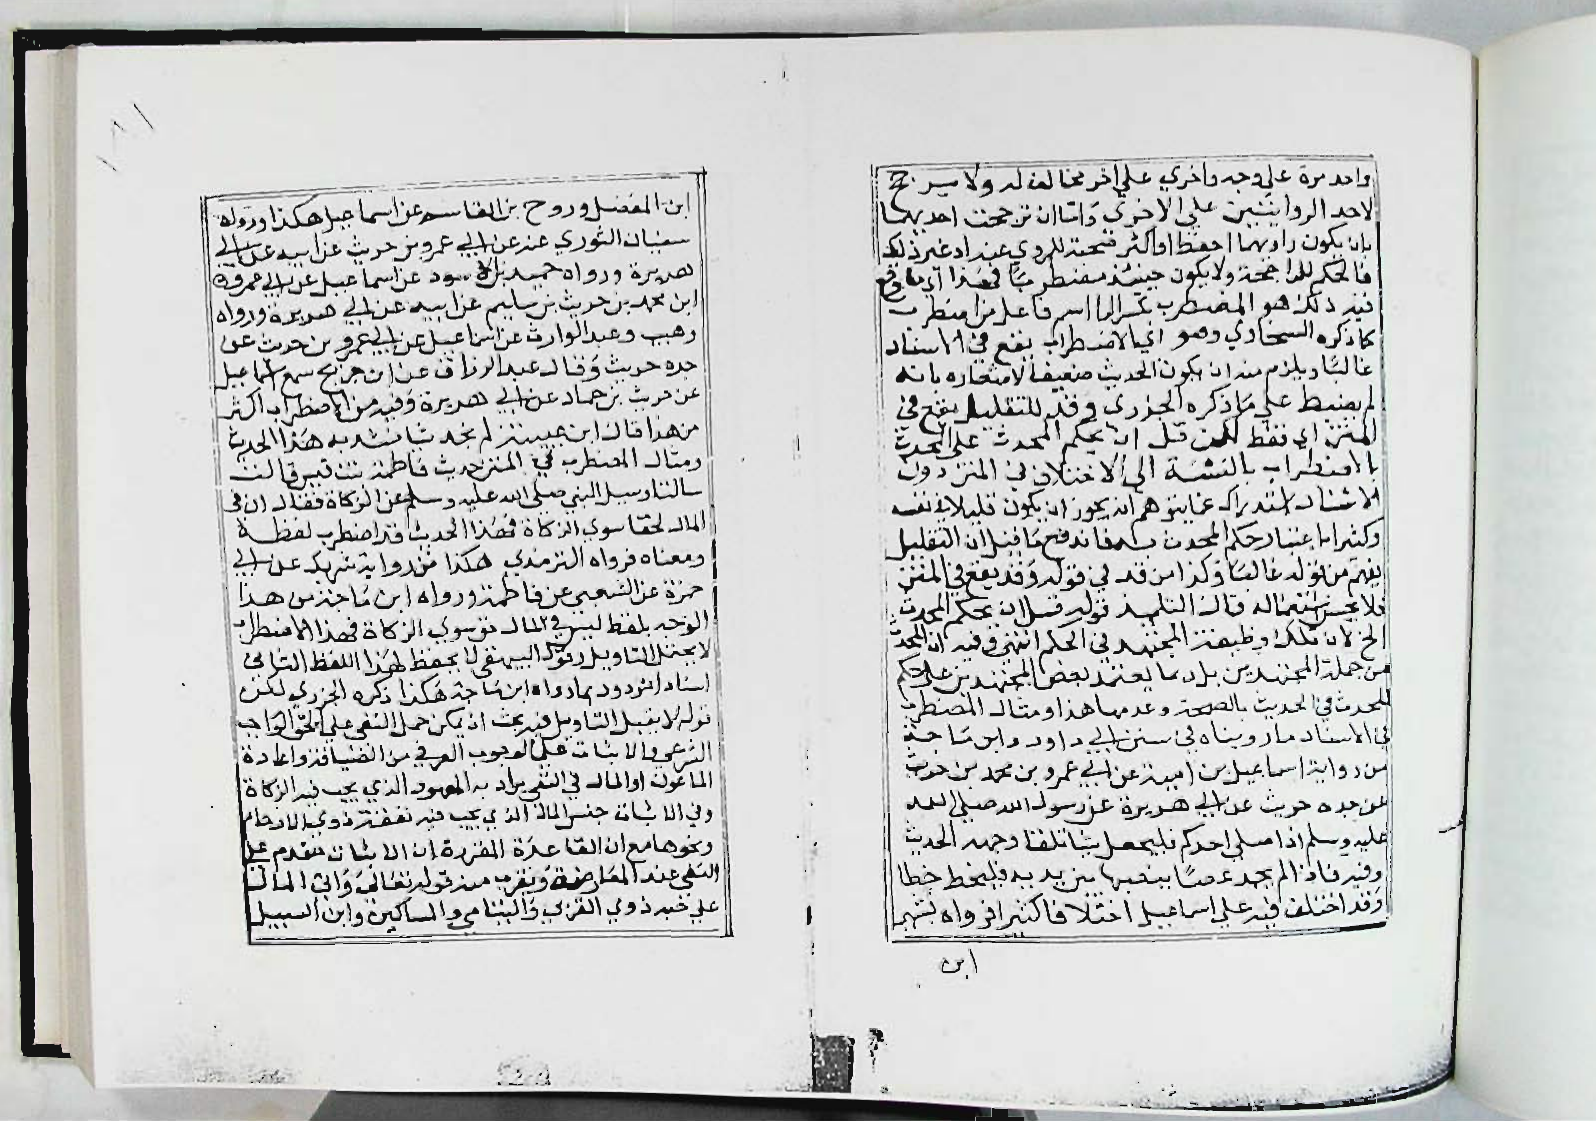 واحد مرة علي وجه واخري علي اخر مخالف له ولا يترجح
لاحد الروايتين علي الاخري واما ان ترجحت احديهما
بان يكون راويها احفظ او اكثر صحبة للمروي عنه او غير ذلك
فالحكم للراجحة ولا يكون حينئذ مضطربا فهذا اي ما وقع
فيه ذلك هو المضطرب بكسر الراء اسم فاعل من اضطرب
كما ذكره السخاوي وهو اي الاضطراب يقع في الاسناد
غالبا ويلزم منه ان يكون الحديث ضعيفا لاشعاره بانه
لم يضبط علي ما ذكره الجزري وقد للتقليل يقع في
المتن اي فقط لكن قل ان يحكم المحدث علي الحديث
بالاضطراب بالنسبة الي الاختلاف في المتن دون
الاسناد استدراك عما يتوهم انه يجوز ان يكون قليلا في نفسه
وكثيرا باعتبار حكم المحدث به فاندفع ما قيل ان التقليل
يفهم من قوله غالبا وكذا من قد في قوله وقد يقع في المتن
فلا يحسن استعماله قال التلميذ قوله قل ان يحكم المحدث
الخ لان تلك وظيفة المجتهد في الحكم انتهي وفيه ان المحدث
من جملة المجتهدين بل ربما يعتمد بعض المجتهدين علي حكم
المحدث في الحديث بالصحة وعدمها هذا ومثال المضطرب
في الاسناد ما رويناه في سنن ابي داود وابن ماجة
من رواية اسماعيل بن امية عن ابي عمرو بن محمد بن حريث
عن جده حريث عن ابي هريرة عن رسول الله صلي الله
عليه وسلم اذا صلي احدكم فليجعل شيئا تلقا وجهه الحديث
وفيه فاذا لم يجد عصا ينصبها بين يديه فليخط خطا
وقد اختلف فيه علي اسماعيل اختلافا كثيرا فرواه بشر
ابن
١٨١
ابن المفضل وروح بن القاسم عن اسماعيل هكذا ورواه
سفيان الثوري عنه عن ابي عمرو بن حريث عن ابيه عن ابي
هريرة ورواه حميد بن الاسود عن اسماعيل عن ابي عمرو
ابن محمد بن حريث بن سليم عن ابيه عن ابي هريرة ورواه
وهيب وعبد الوارث عن اسماعيل عن ابي عمرو بن حريث عن
جده حريث وقال عبد الرزاق عن ابن جريج سمع اسماعيل
عن حريث بن حماد عن ابي هريرة وفيه من الاضطراب اكثر
من هذا قال ابن عيينة لم نجد شيا نشد به هذا الحديث
ومثال المضطرب في المتن حديث فاطمة بنت قيس قالت
سالت او سيل النبي صلي الله عليه وسلم عن الزكاة فقال ان في
المال لحقا سوي الزكاة فهذا الحديث قد اضطرب لفظه
ومعناه فرواه الترمذي هكذا من رواية شريك عن ابي
حمزة عن الشعبي عن فاطمة ورواه ابن ماجة من هذا
الوجه بلفظ ليس في المال حق سوي الزكاة فهذا الاضطراب
لا يحتمل التاويل وقول البيهقي لا يحفظ لهذا اللفظ الثاني
اسنادا مردود بما رواه ابن ماجة هكذا ذكره الجزري لكن
قوله لا يقبل التاويل فيه بحث اذ يمكن حمل النفي علي الحق الواجب
الشرعي والاثبات علي الوجوب العرفي من الضيافة واعادة
الماعون او المال في النفي يراد به المعهود الذي يجب فيه الزكاة
وفي الاثبات جنس المال الذي يجب فيه نفقة ذوي الارحام
ونحوها مع ان القاعدة المقررة ان الاثبات يتقدم علي
النفي عند المعارضة ويقرب منه قوله تعالي واتي المال
علي حبه ذوي القربي واليتامي والمساكين وابن السبيل